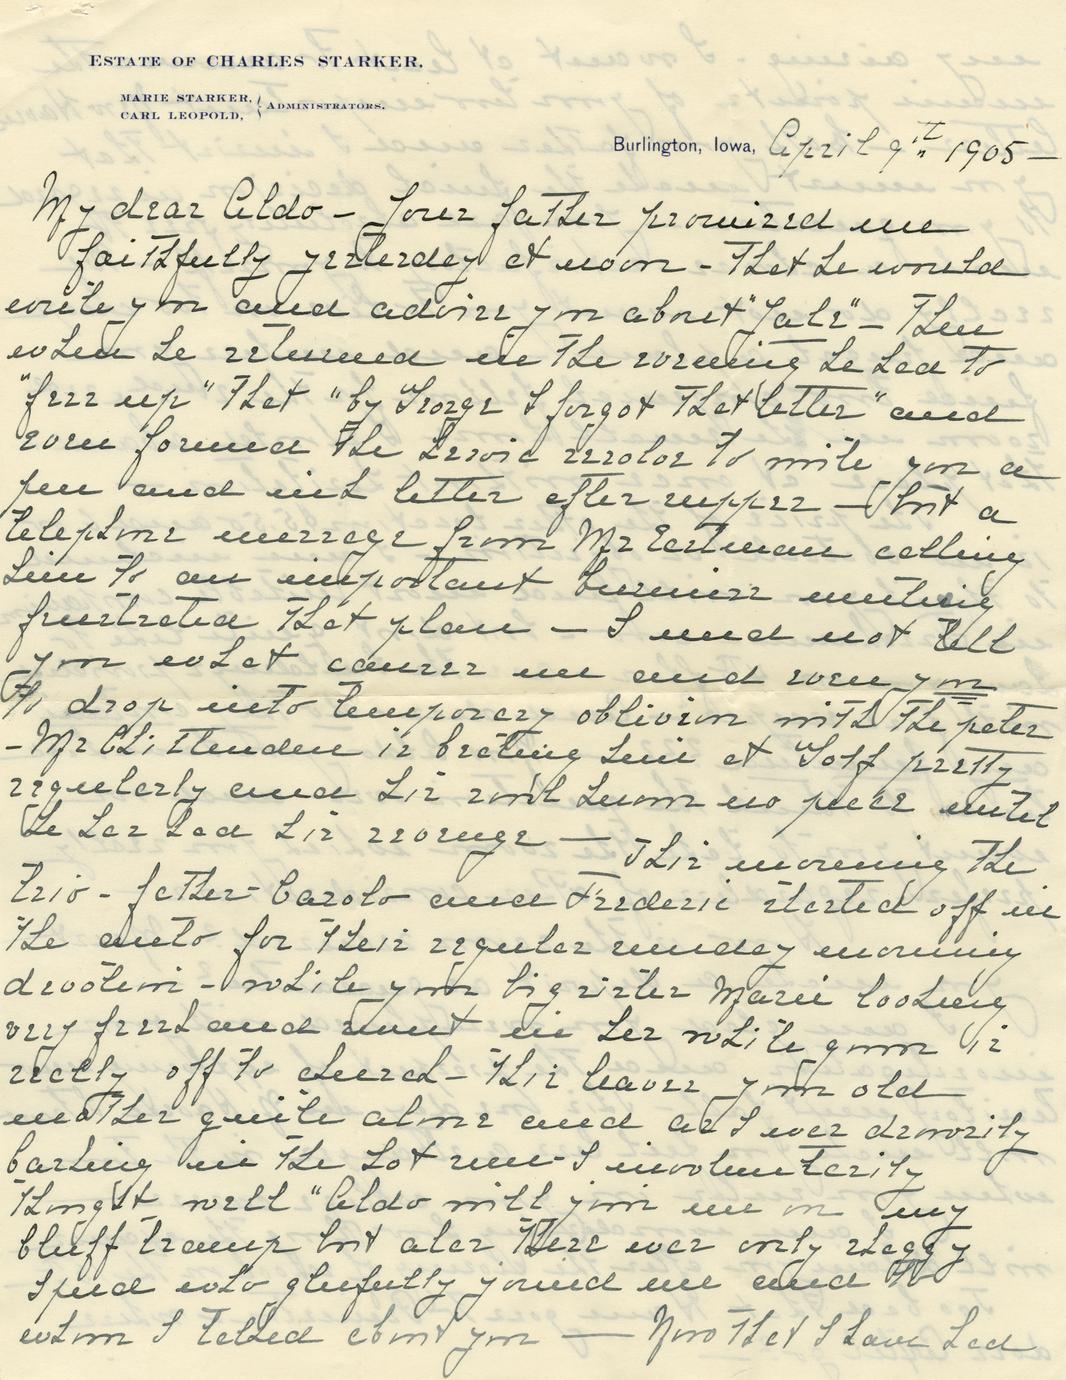 ESTATE OF CHARLES STARKER.
MARIE STARKER,
CARL LEOPOLD, } ADMINISTRATORS.
Burlington, Iowa, April 9th 1905 —
My dear Aldo — Your father promised me
faithfully yesterday at noon - that he would
write you and advise you about "Yale" — Then
when he returned in the evening he had to
"fess up" that "by George I forgot that letter" and
even formed the heroic resolve to write you a
pen and ink letter after supper — but a
telephone message from Mr Eastman calling
him to an important business meeting
frustrated that plan — I need not tell
you what causes me and even you
to drop into temporary oblivion with the pater
- Mr Chittenden is beating him at Golf pretty
regularly and his soul knows no peace until
he has had his revenge — This morning the
trio - father - Carolo and Frederic started off in
the auto for their regular sunday morning
devotion - while your big sister Marie looking
very fresh and sweet in her white gown is
really off to church - this leaves your old
mother quite alone and as I was drowsily
basking in the hot sun - I involuntarily
thought well "Aldo will join me on my
bluff tramp but alas there was only shaggy
Spud who gleefully joined me and to
whom I talked about you — Now that I have had